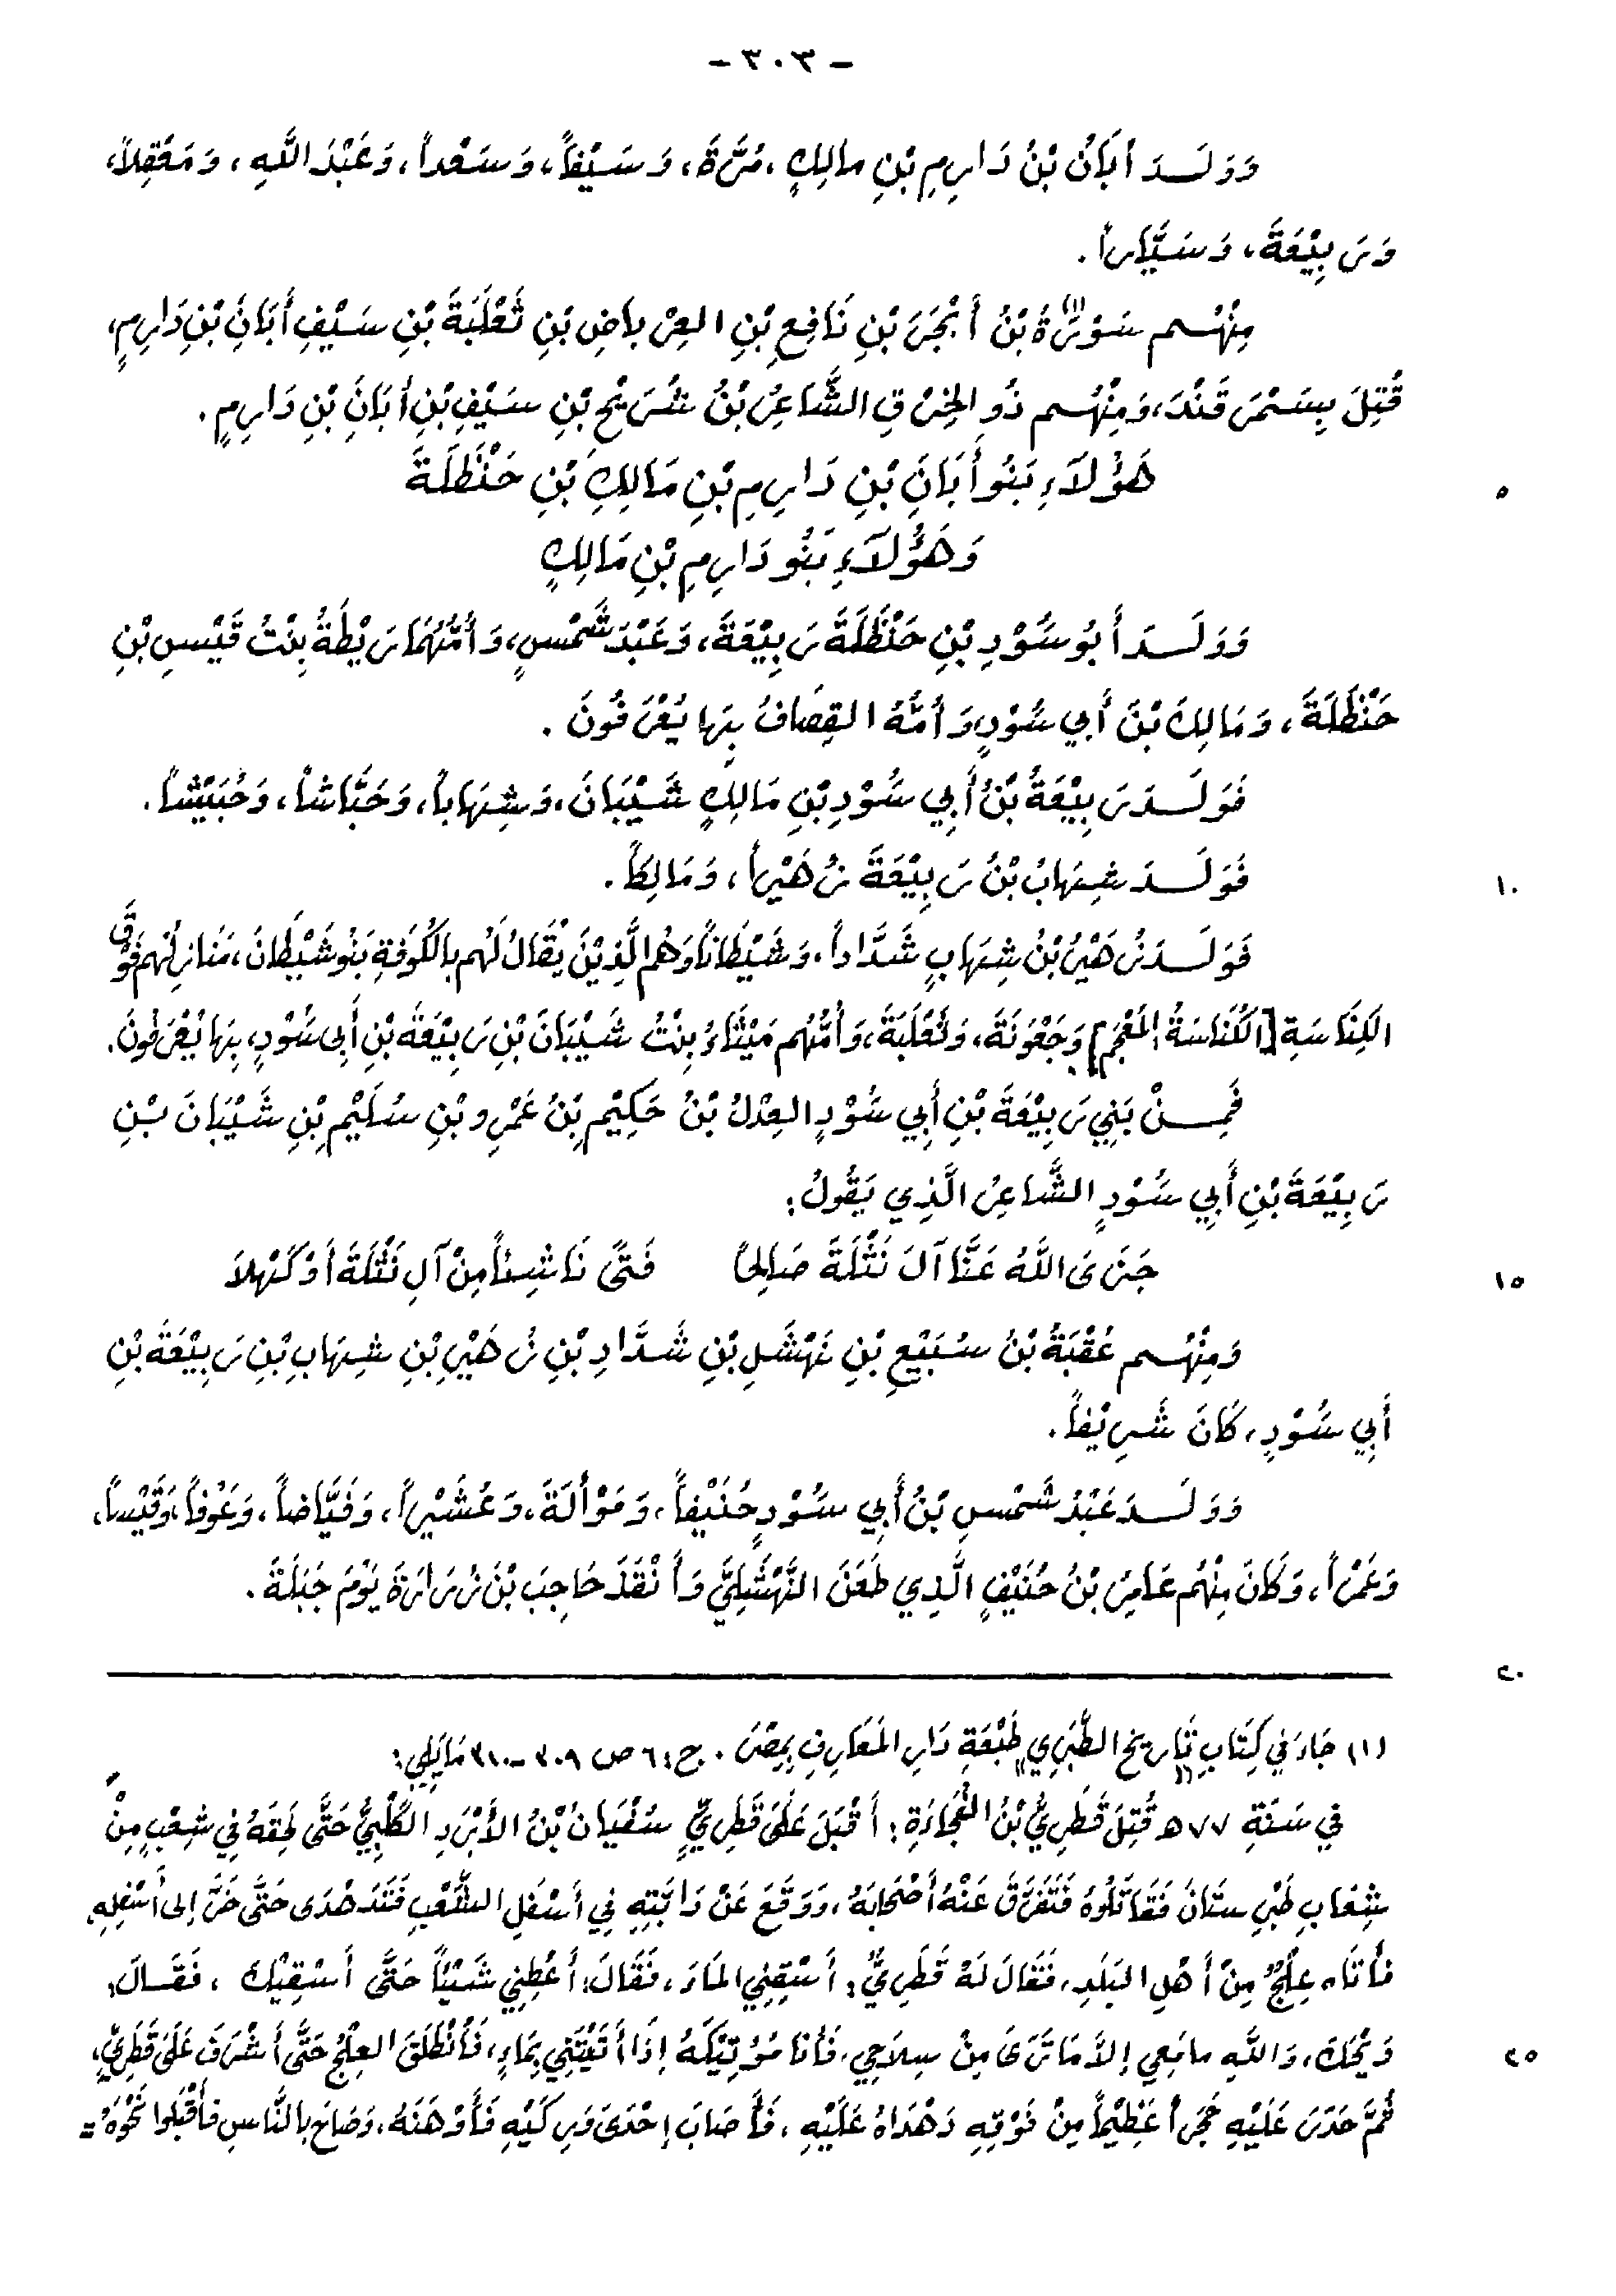 - ٣٠٣ -
وَوَلَــدَ أبَانُ بْنُ دَارِمِ بْنِ مالِكٍ، مُرَّةَ، وَسَيْفاً، وَسَعْداً، وَعَبْدَ اللَّهِ، وَمَعْقِلاً،
وَرَبِيْعَةَ، وَسَيَّاراً.
مِنْهُــم سَوْرَةُ(١) بْنُ أَبْجَرَ بْنِ نَافِعِ بْنِ العِرْباضِ بْنِ ثَعْلَبَةَ بْنِ سَيْفِ أَبَانَ بْنِ دَارِمٍ،
قُتِلَ بِسَمْرَقَنْدَ، وَمِنْهُــم ذُو الخِرْقِ الشَّاعِرُ بْنُ شُرَيْحِ بْنِ سَيْفِ بْنِ أبَانَ بْنِ دَارِمٍ.
هَؤُلاَءِ بَنُو أَبَانَ بْنِ دَارِمِ بْنِ مَالِكِ بْنِ حَنْظَلَةَ
٥
وَهَؤُلاَءِ بَنُو دَارِمِ بْنِ مَالِكٍ
وَوَلَــدَ أَبُو سُوْدِ بْنِ حَنْظَلَةَ رَبِيْعَةَ، وَعَبْدَ شَمْسٍ، وَأُمُّهُمَا رَيْطَةُ بِنْتُ قَيْسِ بْنِ
حَنْظَلَةَ، وَمَالِكَ بْنَ أَبِي سُوْدٍ وَأُمُّهُ القِصَافُ بِهَا يُعْرَفُونَ.
فَوَلَــدَ رَبِيْعَةُ بْنُ أَبِي سُوْدِ بْنِ مَالِكٍ شَيْبَانَ، وَشِهَاباً، وَحَبَّاشاً، وَحُبَيْشاً.
فَوَلَــدَ شِهَابُ بْنُ رَبِيْعَةَ زُهَيْراً، وَمَالِكاً.
١٠
فَوَلَــدَ زُهَيْرُ بْنُ شِهَابٍ شَدَّاداً، وَشَيْطَاناً وَهُم الَّذِيْنَ يُقَالُ لَهُم بالكُوفَةِ بَنُو شَيْطَانَ، مَنَازِلُهُم فَوْقَ
الكِنَاسَةِ [الكُنَاسَةُ المَعْجَم] وَجَعْوَنَةَ، وَثَعْلَبَةَ، وَأُمُّهُم مَيْثَاءُ بِنْتُ شَيْبَانَ بْنِ رَبِيْعَةَ بْنِ أَبِي سُوْدٍ، بِهَا يُعْرَفُونَ.
فَمِــنْ بَنِي رَبِيْعَةَ بْنِ أَبِي سُوْدٍ العِدْلُ بْنُ حَكِيْمِ بْنُ عَمْرِو بْنِ سُلَيْمِ بْنِ شَيْبَانَ بْنِ
رَبِيْعَةَ بْنِ أَبِي سُوْدٍ الشَّاعِرُ الَّذِي يَقُولُ:
جَزَى اللَّهُ عَنَّا آلَ نَثْلَةَ صَالِحاً فَتَىً نَاشِئاً مِنْ آلِ نَثْلَةَ أَوْ كَهْلاَ
١٥
وَمِنْهُــم عُقْبَةُ بْنُ سُبَيْعِ بْنِ نَهْشَلِ بْنِ شَدَّادِ بْنِ زُهَيْرِ بْنِ شِهَابِ بْنِ رَبِيْعَةَ بْنِ
أَبِي سُوْدٍ، كَانَ شَرِيْفاً.
وَوَلَــدَ عَبْدُ شَمْسِ بْنُ أَبِي سُوْدٍ حُنَيْفاً، وَمَوْأَلَةَ، وَعُشَيْراً، وَفَيَّاضاً، وَعَوْفاً، وَقَيْساً،
وَعَمْراً، وَكَانَ مِنْهُم عَامِرُ بْنُ حُنَيْفٍ الَّذِي طَعَنَ النَّهْشَلِيَّ وَأَنْقَذَ حَاجِبَ بْنَ زُرَارَةَ يَوْمَ جَبَلَةَ.
٢٠
(١) جَاءَ فِي كِتَابِ "تَارِيخ الطَّبَرِي" طَبْعَةِ دَارِ المَعَارِفِ بِمِصْرَ. ج: ٦ ص ٣٠٩-٣١٠ مَا يَلِي:
فِي سَنَةِ ٧٧ هـ قُتِلَ قَطَرِيُّ بْنُ الفُجَاءَةِ: أَقْبَلَ عَلَى قَطَرِيٍّ سُفْيَانُ بْنُ الأَبْرَدِ الكَلْبِيُّ حَتَّى لَحِقَهُ فِي شِعْبٍ مِنْ
شِعَابِ طَبَرِسْتَانَ فَقَاتَلُوهُ فَتَفَرَّقَ عَنْهُ أَصْحَابَهُ، وَوَقَعَ عَنْ دَابَّتِهِ فِي أَسْفَلِ الشِّعْبِ فَتَدَهْدَى حَتَّى خَرَّ إِلى أَسْفِلِهِ،
فأَتَاه عِلْجٌ مِنْ أَهْلِ البَلَدِ، فَقَالَ لَهُ قَطَرِيٌّ: أَسْقِنِي المَاءَ، فَقَالَ: أَعْطِنِي شَيْئاً حَتَّى أَسْقِيْكَ، فَقَــالَ:
وَيْحَكَ، وَاللَّهِ مامَعِي إِلاَّ مَا تَرَى مِنْ سِلاَحِي، فَأَنا مُؤْتِيْكَهُ إِذَا أَتَيْتَنِي بِمَاءٍ، فَأَنْطَلَقَ العِلْجُ حَتَّى أَشْرَفَ عَلَى قَطَرِيٍّ،
٢٥
ثُمَّ حَدَرَ عَلَيْهِ حَجَراً عَظِيْماً مِنْ فَوْقِهِ دَهْدَاهُ عَلَيْهِ، فَأَصَابَ إِحْدَى وَرِكَيْهِ فَأَوْهَنَهُ، وَصَاحَ بالنَّاسِ فأَقْبَلوا نَحْوَهُ =